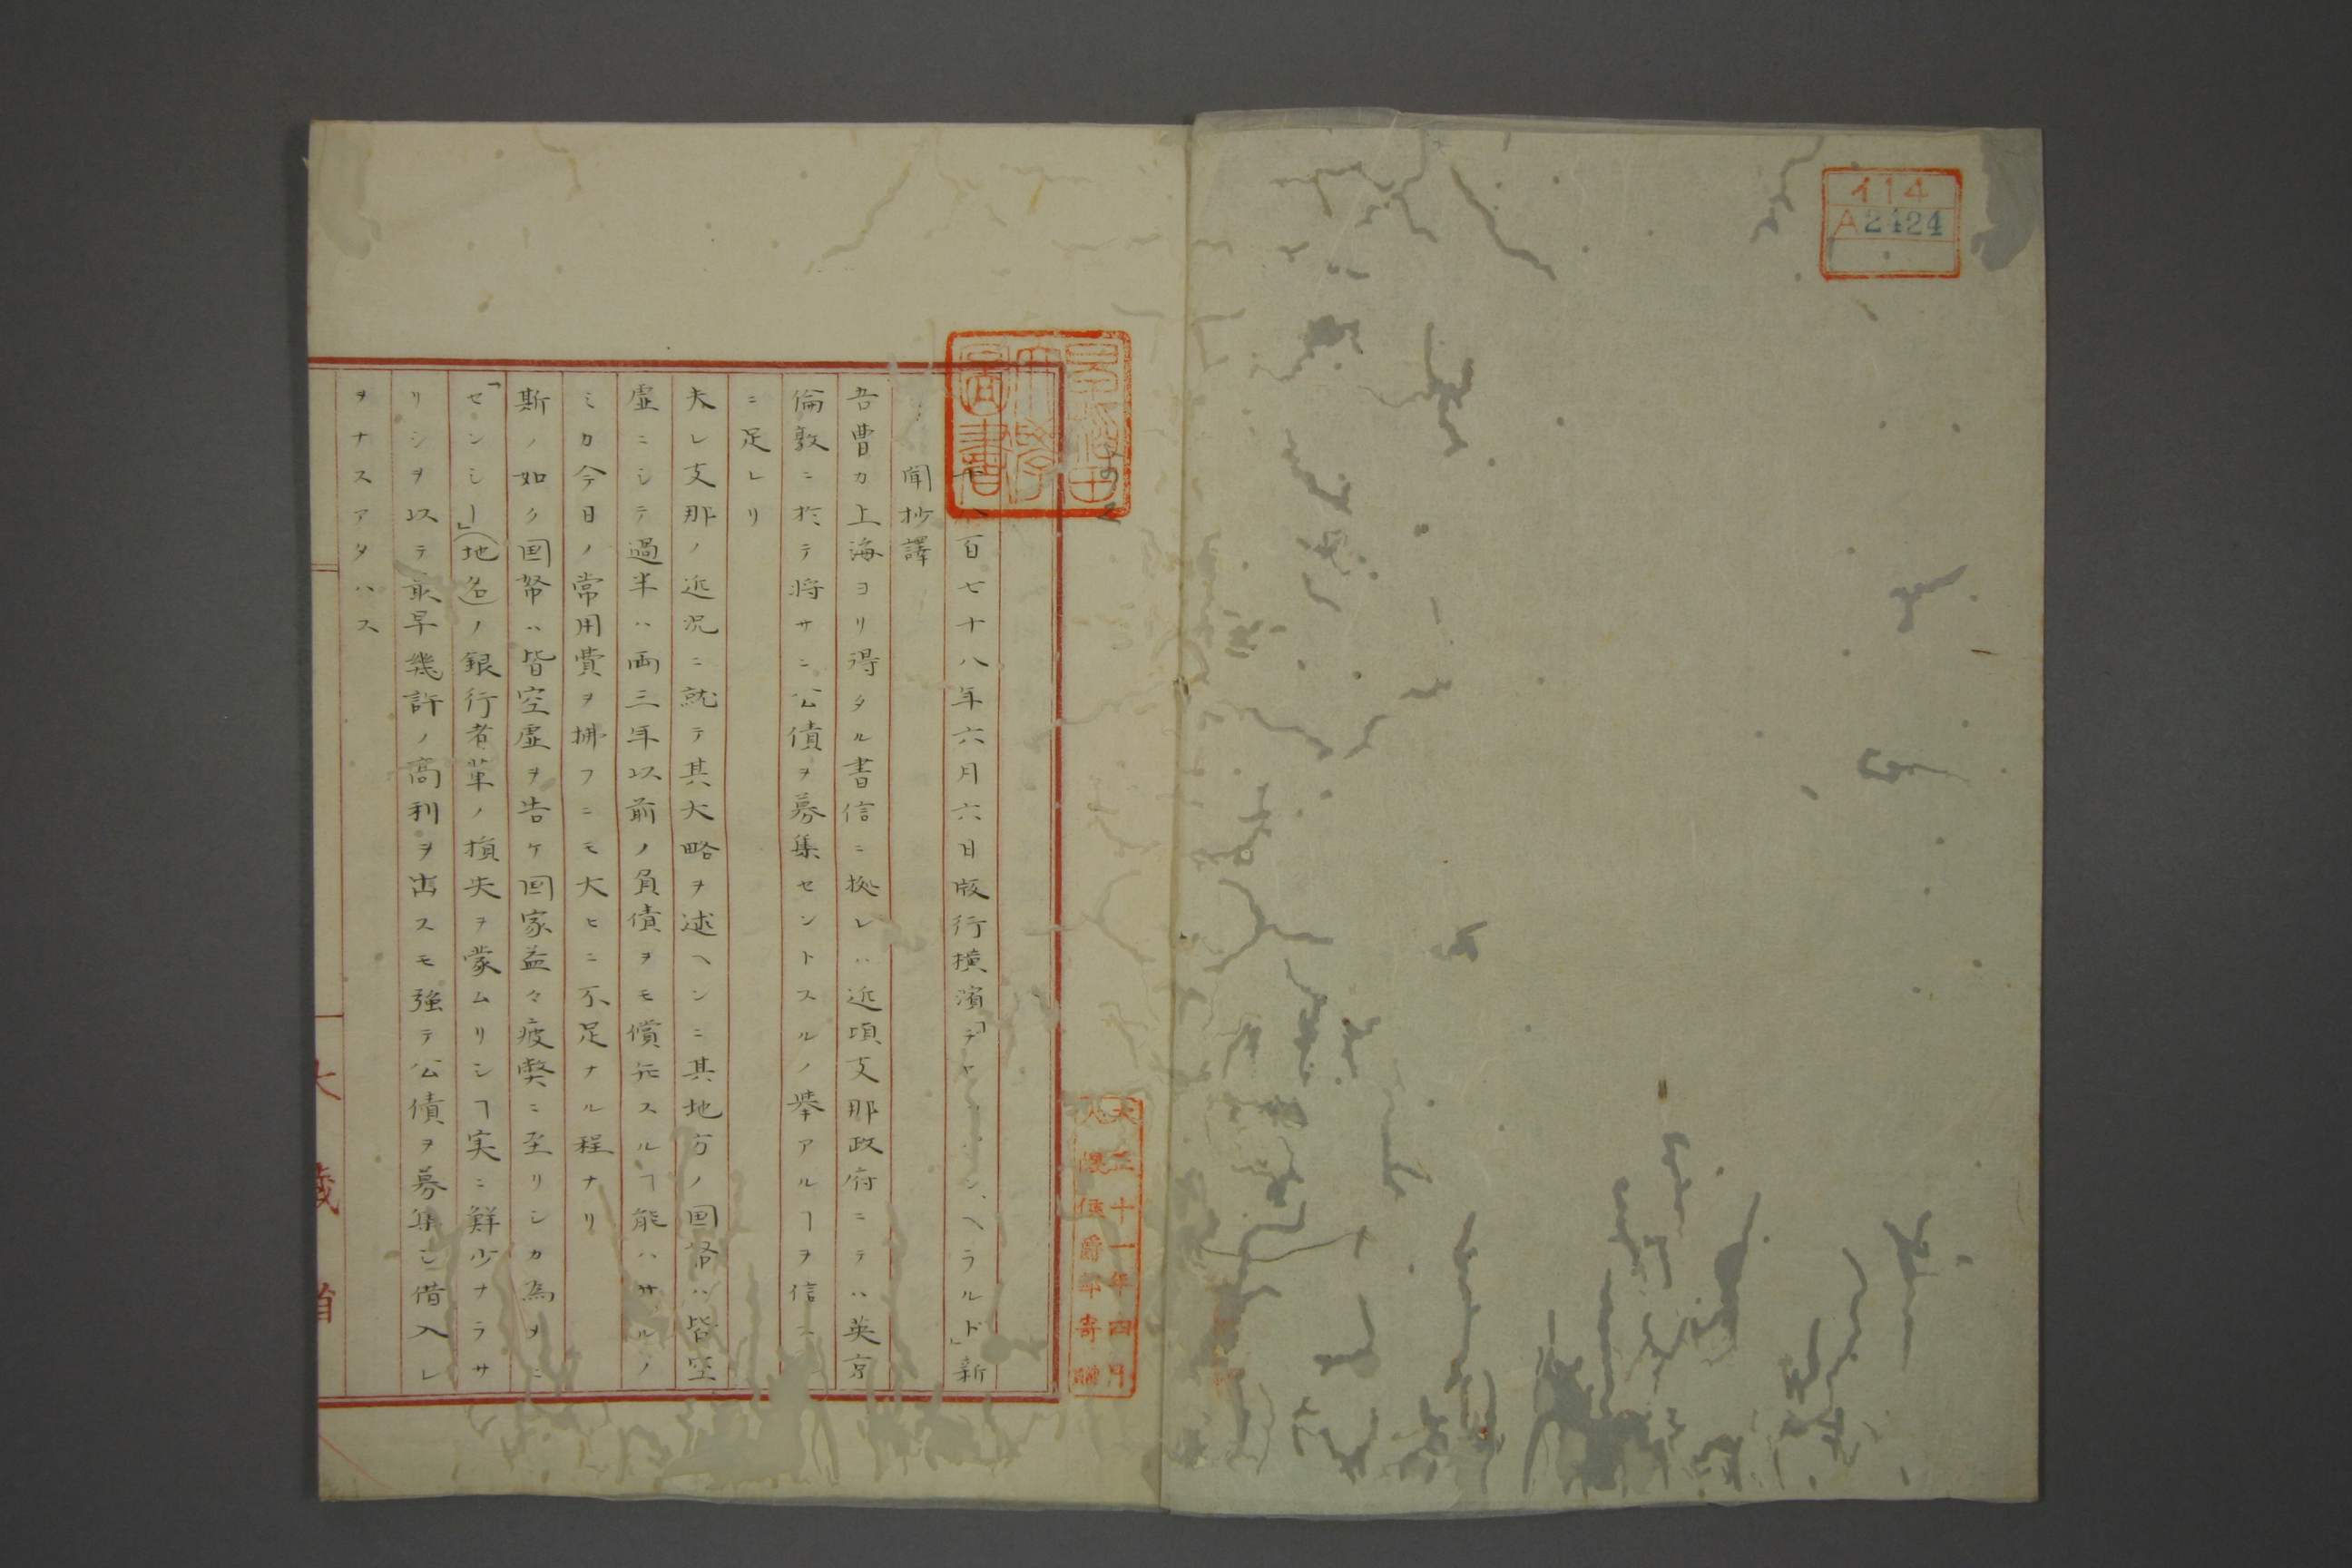 イ14
A2424
早稲田
大学
図書
大正十一年四月
大隈侯爵邸寄贈
百七十八年六月六日版行横濱「ヂャ ン、ヘラルド」新
聞抄譯
吾曹カ上海ヨリ得タル書信ニ拠レハ近頃支那政府ニテハ英京
倫敦ニ於テ将サニ公債ヲ募集セントスルノ挙アルヿヲ信
ニ足レリ
夫レ支那ノ近況ニ就テ其大略ヲ述ヘンニ其地方ノ国帑ハ皆空
虚ニシテ過半ハ両三年以前ノ負債ヲモ償却スルヿ能ハサルノ
ミカ今日ノ常用費ヲ拂フニモ大ヒニ不足ナル程ナリ
斯ノ如ク国帑ハ皆空虚ヲ告ケ国家益々疲弊ニ至リシカ為メニ
「センシー」(地名)ノ銀行者輩ノ損失ヲ蒙ムリシヿ実ニ鮮少ナラサ
リシヲ以テ最早幾許ノ高利ヲ出スモ強テ公債ヲ募集シ借入レ
ヲナスアタハス
大藏省